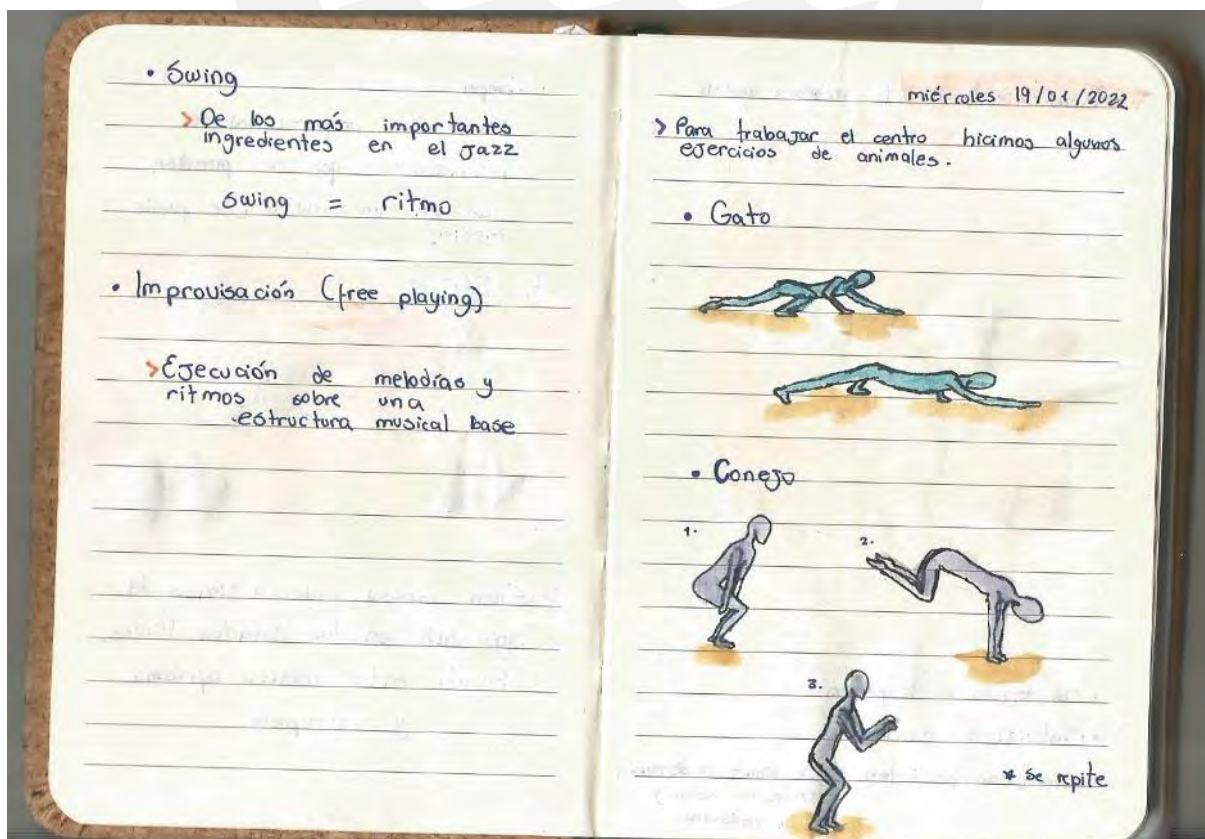 • Swing
> De los más importantes
ingredientes en el Jazz
swing = ritmo
• Improvisación (free playing)
> Ejecución de melodías y
ritmos sobre una
estructura musical base
miércoles 19/01/2022
> Para trabajar el centro hicimos algunos
ejercicios de animales.
• Gato
• Conejo
1.
2.
3.
* se repite